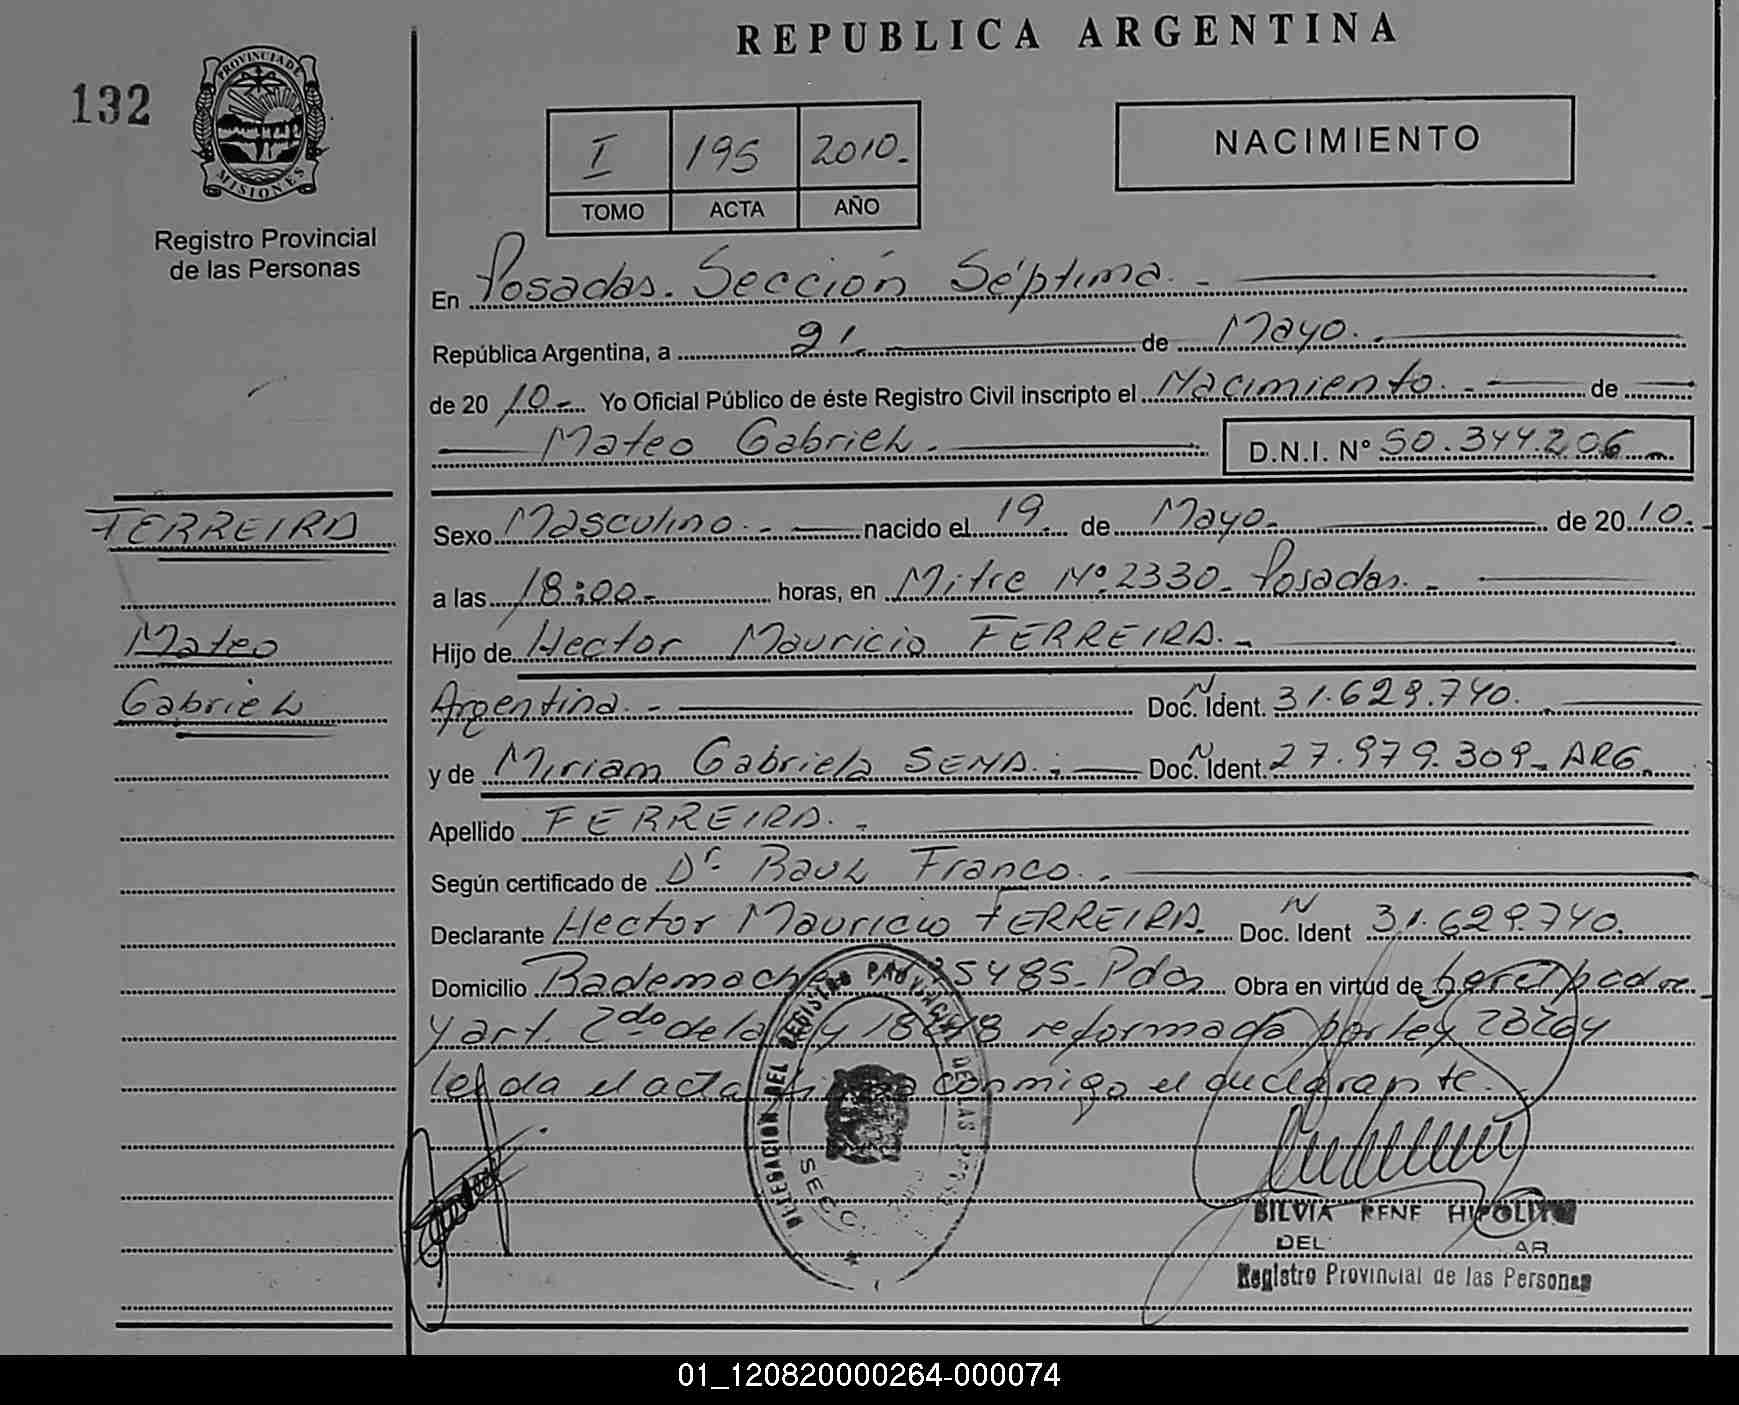 REPUBLICA ARGENTINA
132
PROVINCIA DE
MISIONES
Registro Provincial
de las Personas
I 195 2010.-
TOMO ACTA AÑO
NACIMIENTO
En Posadas. Sección Séptima.-
República Argentina, a 21. de Mayo.-
de 2010.- Yo Oficial Público de éste Registro Civil inscripto el Nacimiento.- de
Mateo Gabriel. D.N.I. Nº 50.344.206
FERREIRA
Mateo
Gabriel
Sexo Masculino.- nacido el 19. de Mayo.- de 2010.-
a las 18:00.- horas, en Mitre Nº 2330.- Posadas.-
Hijo de Hector Mauricio FERREIRA.-
Argentina.- Doc. Ident. N 31.629.740.
y de Miriam Gabriela SENA.- Doc. Ident. N 27.979.309- ARG.
Apellido FERREIRA.-
Según certificado de Dr. Raul Franco.
Declarante Hector Mauricio FERREIRA. Doc. Ident N 31.629.740.
Domicilio 5485- Pdas Obra en virtud de
y art. 2do de la reformada por ley
el acta conmigo el declarante.
DELEGACION DEL REGISTRO PROVINCIAL DE LAS
SECC.
SILVIA RENE HIPOLITO
DEL AR
Registro Provincial de las Personas
01_120820000264-000074